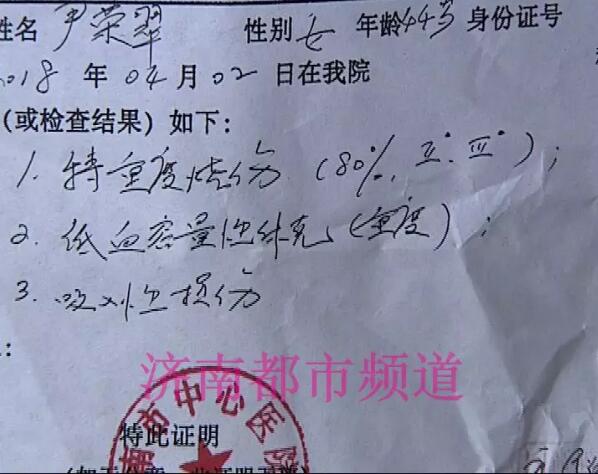 姓名 尹荣翠 性别 女 年龄 44岁 身份证号
2018 年 04 月 02 日在我院
（或检查结果）如下：
1. 特重度烧伤（80%，Ⅱ°Ⅲ°）；
2. 低血容量性休克（重度）；
3. 吸入性损伤
：
济南都市频道
南市中心医院
特此证明